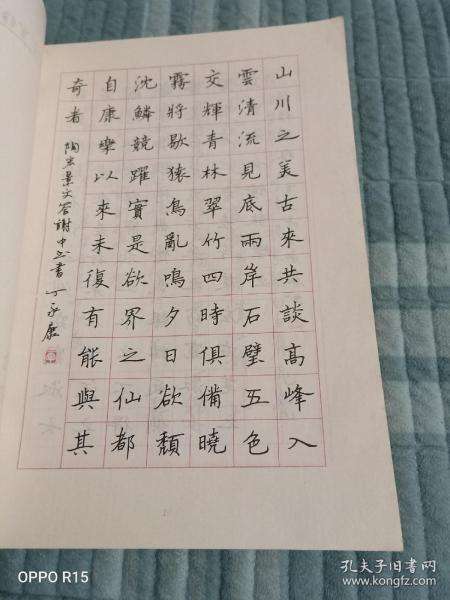 山川之美古來共談高峰入
雲清流見底兩岸石壁五色
交輝青林翠竹四時俱備曉
霧將歇猿鳥亂鳴夕日欲頹
沈鱗競躍實是欲界之仙都
自康樂以來未復有能與其
奇者
陶宏景文答謝中書書 丁永康
OPPO R15
孔夫子旧书网
www.kongfz.com